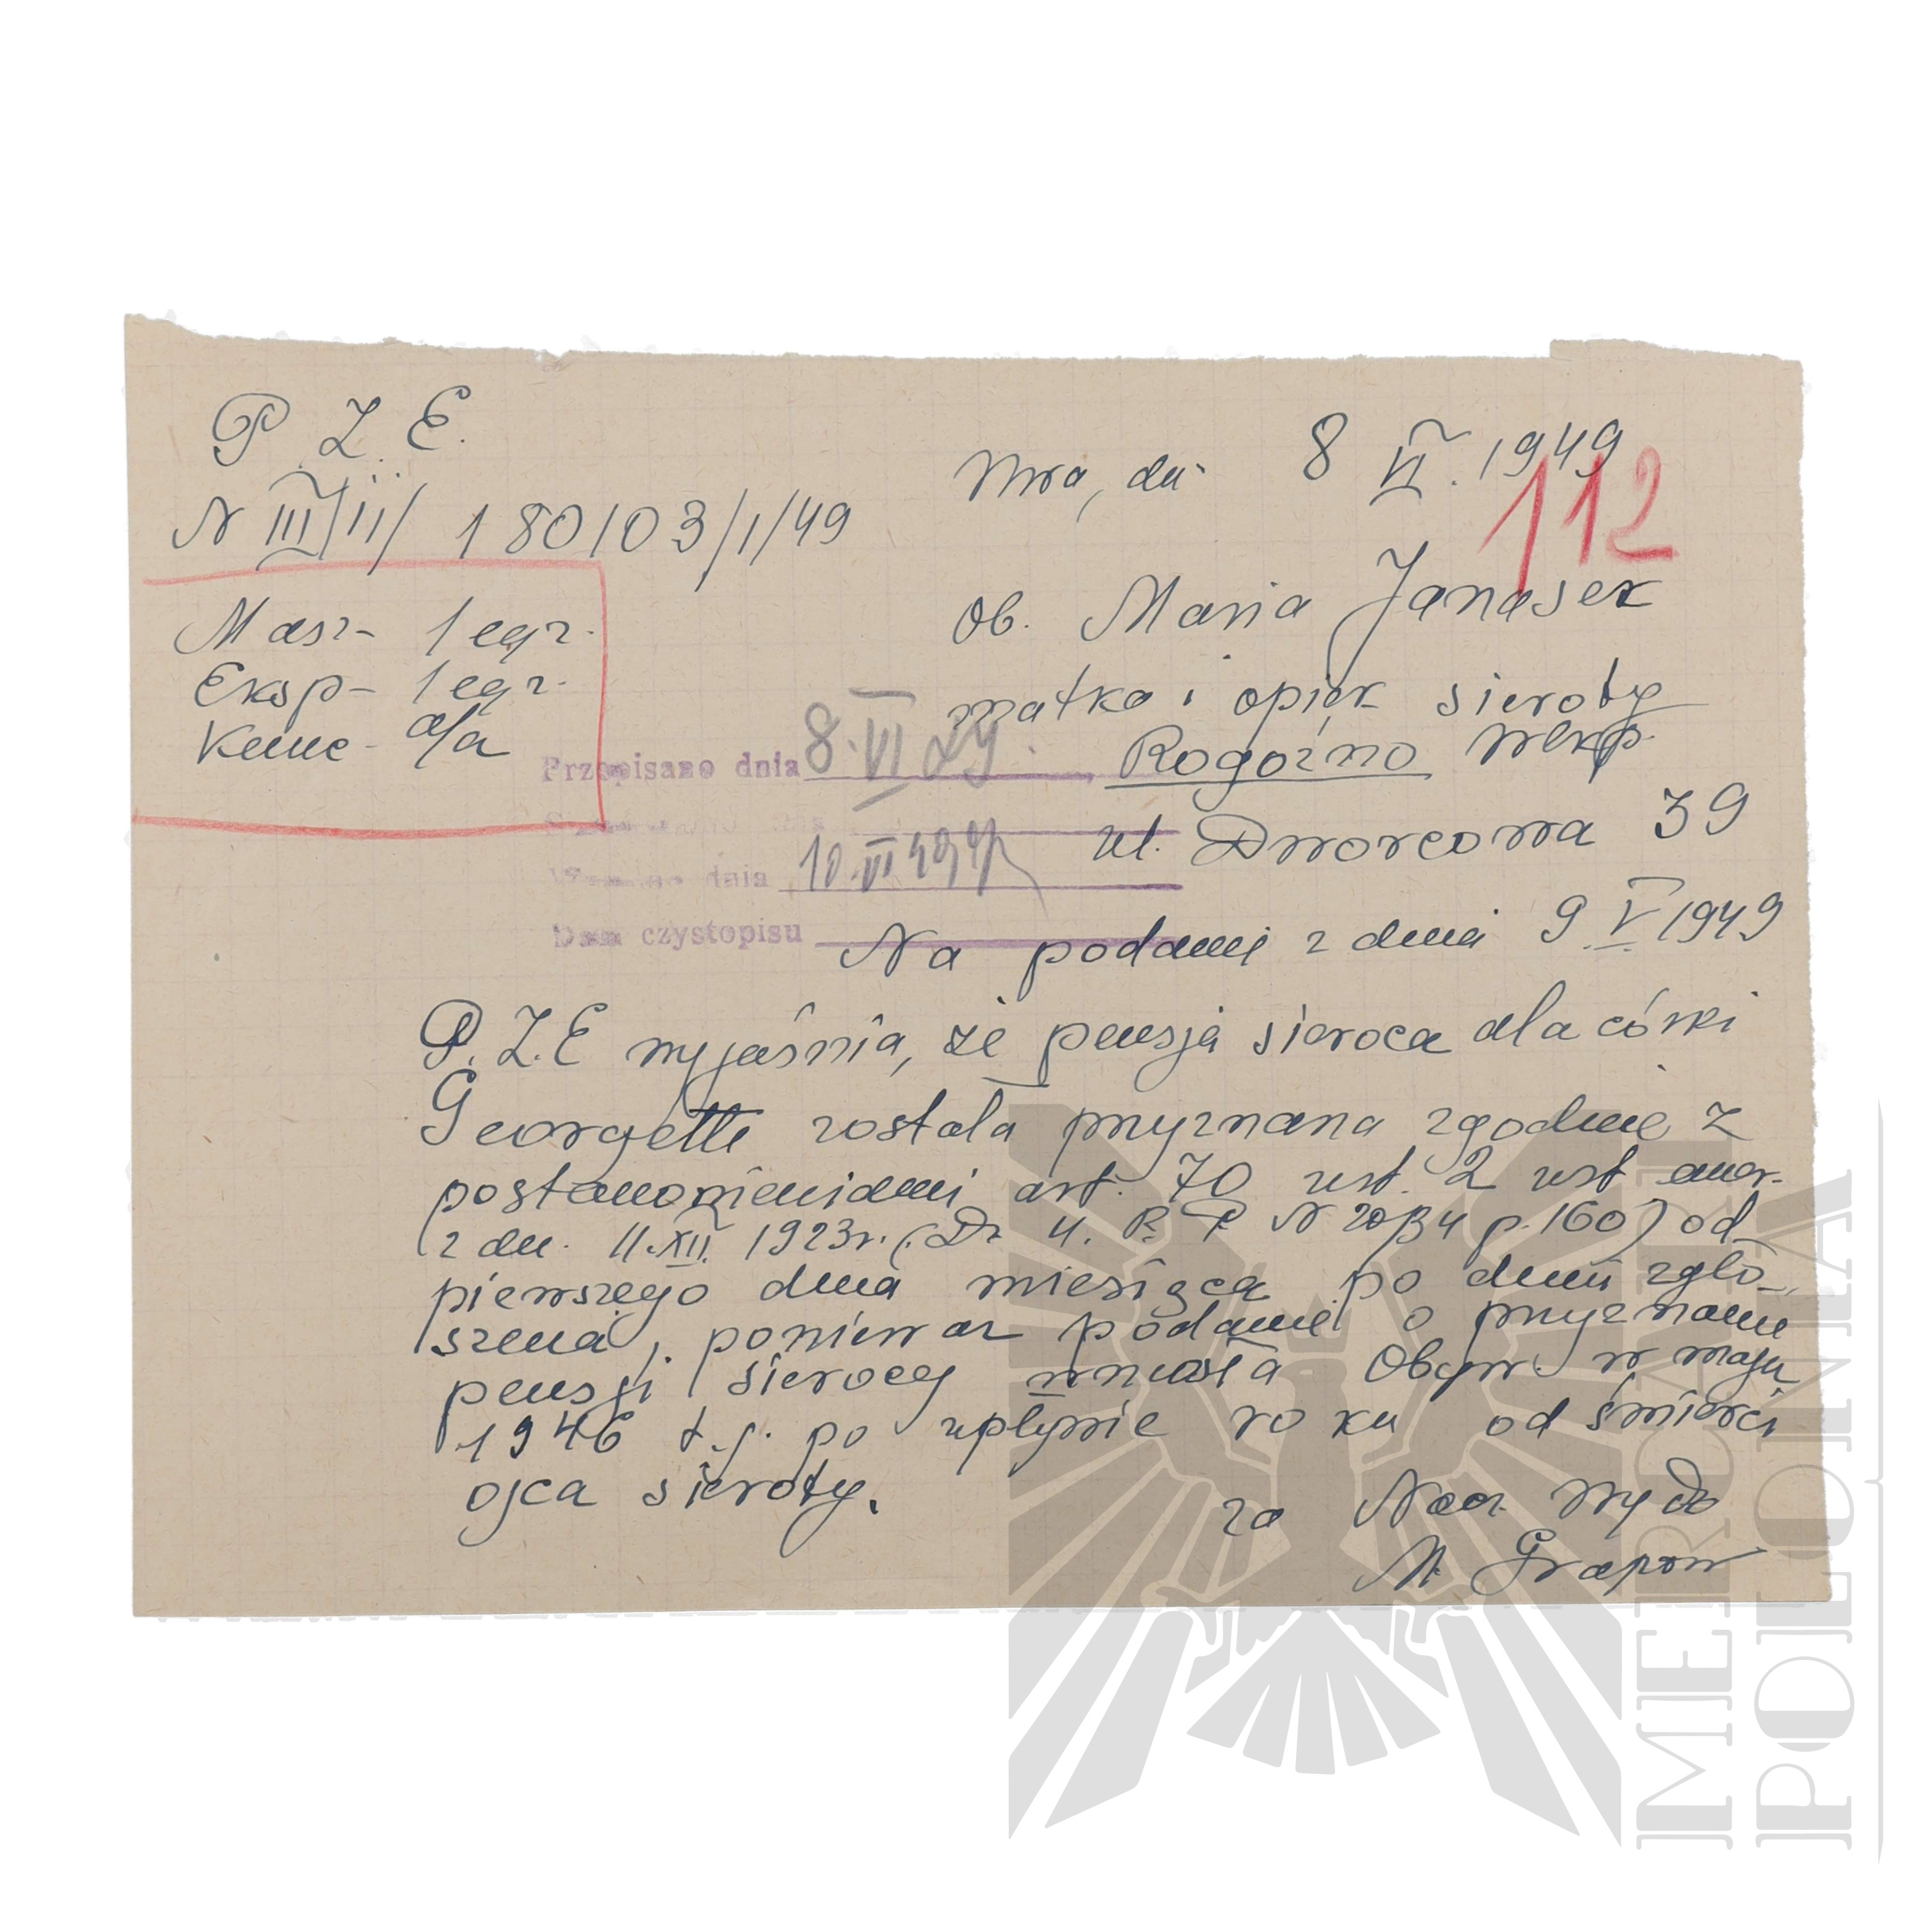 P. Z. E.
N III/ii/ 180103/1/49
Wwa, dn. 8 VI. 1949
112
Masz - 1 egz.
Eksp - 1 egz.
a/a
Ob. Maria Janasek
matka i opiek sieroty
Rogoźno Wlkp.
ul. Dworcowa 39
Przepisano dnia 8. VI
dnia 10. VI 49
czystopisu
Na podanie z dnia 9. V. 1949
P.Z.E wyjaśnia, że pensja sieroca dla córki
Georgette została przyznana zgodnie z
postanowieniami art. 70 ust. 2 ust emer.
z dn. 11.XII. 1923r. (Dz U. R. P. N 20/34 p. 160) od
pierwszego dnia miesiąca po dniu zgło-
szenia, ponieważ podanie o przyznanie
pensji sierocej wniosła Obyw. w maju
1946 t.j. po upływie roku od śmierci
ojca sieroty.
za Nacz. Wydz
IMERCNAI
POLONIA